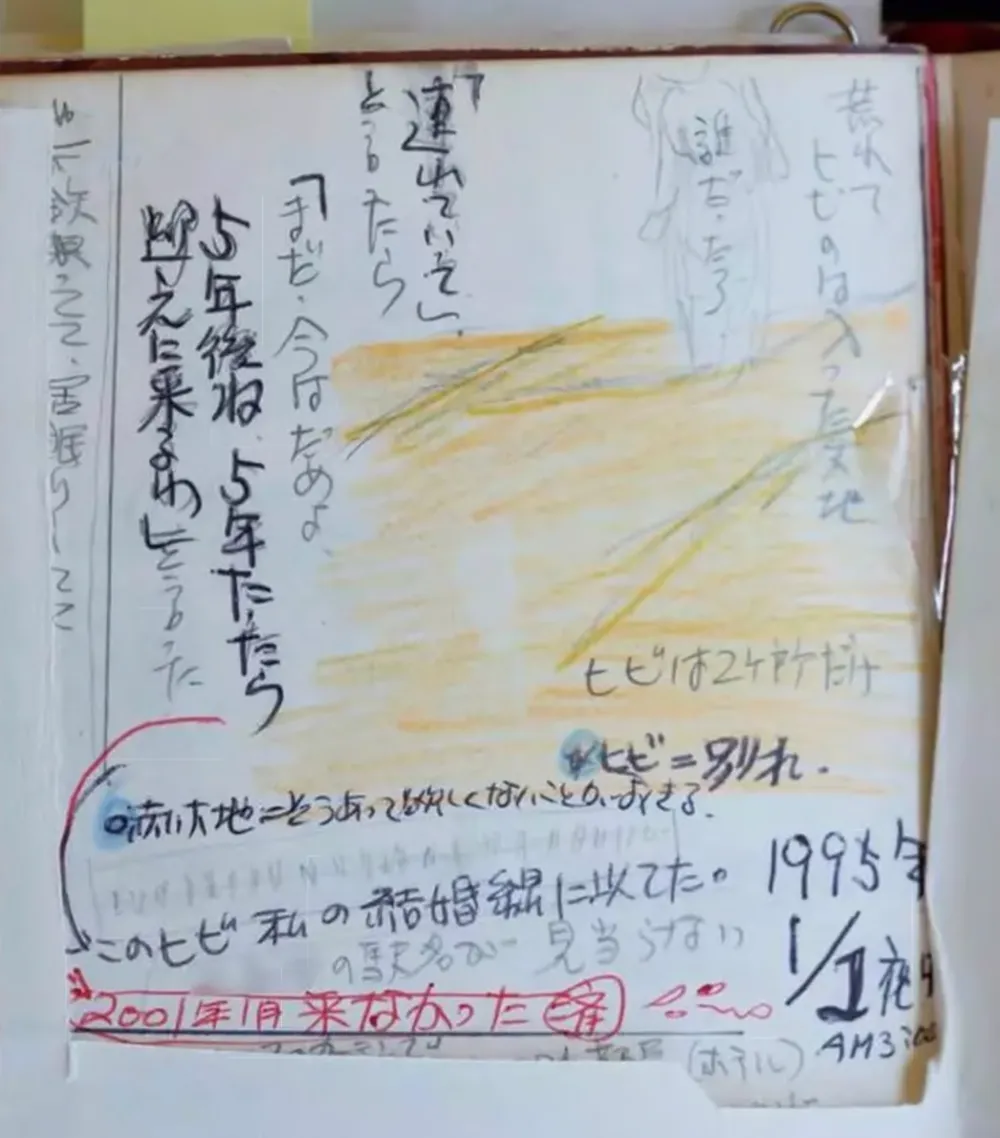 荒れて
ヒビのは入った大地
誰だったろう
「連れていって」
と言ったら
「まだ今はだめよ、
5年後ね 5年たったら
迎えに来るわ」と言った
ヒビは2ケ所だけ
ヒビ=別れ.
そうあって欲しくないことがおきる.
このヒビ 私の結婚線に似てた。
の駅名が 見当らない
1995年
1/2夜中
AM3:00
2001年1月 来なかった
(ホテル)